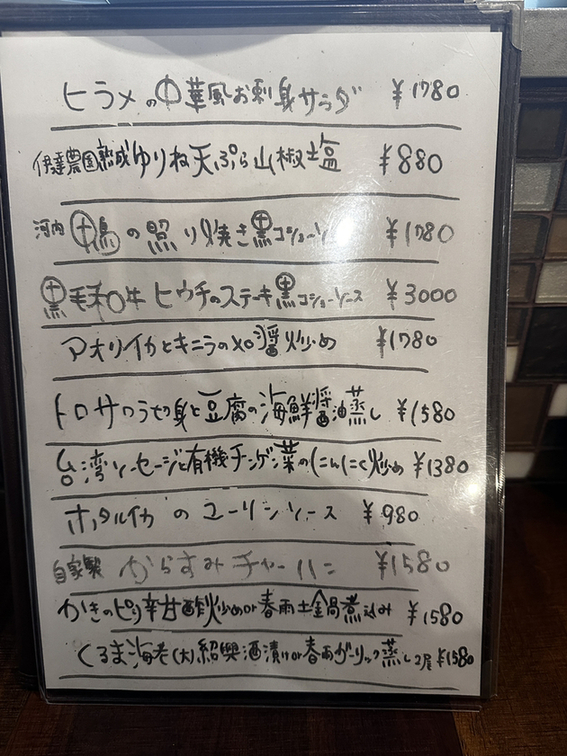 ヒラメの中華風お刺身サラダ ¥1780
伊達農園熟成ゆりね天ぷら山椒塩 ¥880
河内鴨の照り焼き黒コショーソース ¥1780
黒毛和牛ヒウチのステーキ黒コショーソース ¥3000
アオリイカとキニラのXO醬炒め ¥1780
トロサワラ切身と豆腐の海鮮醬油蒸し ¥1580
台湾ソーセージと有機チンゲン菜のにんにく炒め ¥1380
ホタルイカのユーリンソース ¥980
自家製からすみチャーハン ¥1580
かきのピリ辛甘酢炒めor春雨土鍋煮込み ¥1580
くるま海老(大)紹興酒漬けor春雨ガーリック蒸し2尾 ¥1580